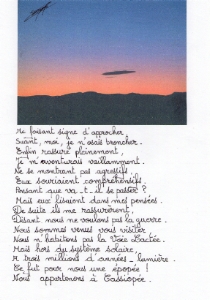 Me faisant signe d'approcher
Suant, moi, je n'osais broncher.
Enfin rassuré pleinement,
Je m'aventurais vaillamment.
Ne se montrant pas agressifs
Eux souriaient compréhensifs.
Pensant que va-t-il se passer ?
Mais eux lisaient dans mes pensées.
De suite ils me rassurèrent,
Disant nous ne voulons pas la guerre.
Nous sommes venus vous visiter
Nous n'habitons pas la Voie Lactée.
Mais hors du système solaire
A trois millions d'années-lumière.
Ce fut pour nous une épopée !
Nous appartenons à Cassiopée.